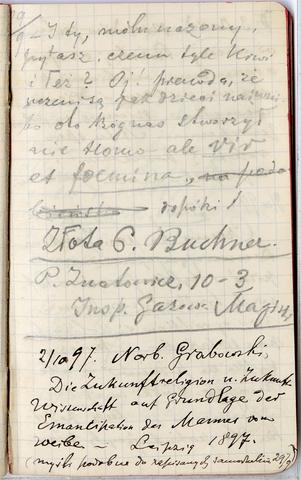 9/9 – I ty, mój
pytasz czemu tyle Krwi
i Łez? Oj! prawda, że
jak dzieci
bo oto Bóg nas stworzył
nie Homo ale vir
et foemina „
dopóki!
Złota 6. Buchner.
P. Znatowicz, 10–3
Insp. Gazow. Magis.
2/10 97. Norb. Grabowski,
Die Zukunftreligion u. Zukunft
Wissenschaft auf Grundlage der
Emancipation des Mannes vom
Weibe – Leipzig 1897.
(myśli podobne do zapisanych samodzielnie 29/9)